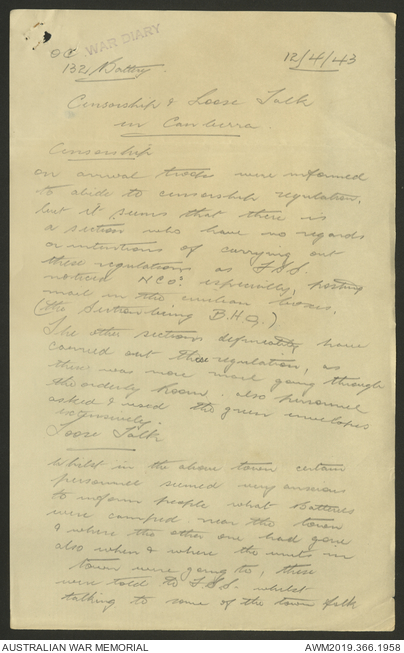 OC WAR DIARY 12/4/43
132 Battery.
Censorship & Loose Talk
in Canberra
Censorship
on arrival troops were informed
to abide to censorship regulation,
but it seems that there is
a section who have no regards
or intentions of carrying out
these regulations as F.S.S.
noticed NCOs especially, posting
mail in the civilian boxes.
(the Section being B.H.Q.)
The other sections definitely have
carried out these regulation, as
there was more mail going through
the orderly Room. also personnel
asked & used the green envelopes
extensively.
Loose Talk
Whilst in the above town certain
personnel seemed very anxious
to inform people what Batteries
were camped near the town
& where the other one had gone
also when & where the units in
town were going to, these
were told to F.S.S. whilst
talking to some of the town folk
AUSTRALIAN WAR MEMORIAL AWM2019.366.1958